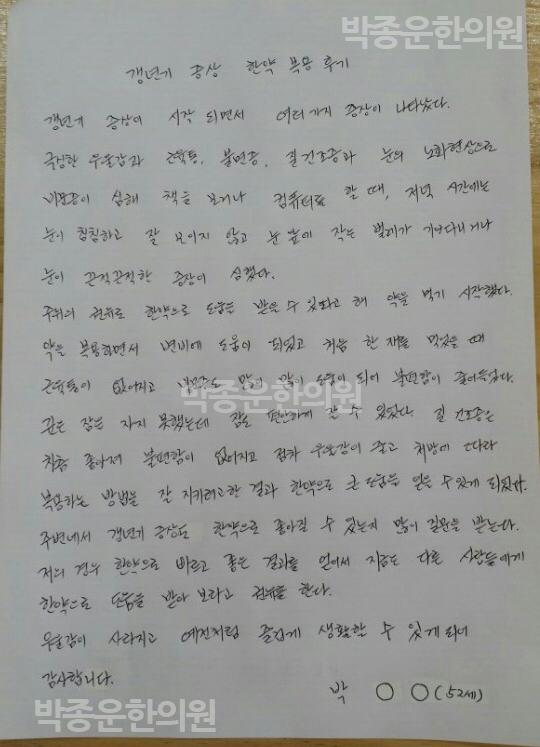 박종운한의원
갱년기 증상 한약 복용 후기
갱년기 증상이 시작 되면서 여러가지 증상이 나타났다.
극심한 우울감과 근육통, 불면증, 질건조증과 눈의 노화현상으로
비문증이 심해 책을 보거나 컴퓨터를 할 때, 저녁 시간에는
눈이 침침하고 잘 보이지 않고 눈 앞에 작은 벌레가 기어다니거나
눈이 끈적끈적한 증상이 심했다.
주위의 권유로 한약으로 도움을 받을 수 있다고 해 약을 먹기 시작했다.
약을 복용하면서 변비에 도움이 되었고 처음 한 재를 먹었을 때
근육통이 없어지고 많이 많이 도움이 되어 불편함이 줄어들었다.
박종운한의원
깊은 잠은 자지 못했는데 잠도 편안하게 잘 수 있었다. 질 건조증은
차츰 좋아져 불편함이 없어지고 점차 우울감이 줄고 처방에 따라
복용하는 방법을 잘 지키려고한 결과 한약으로 큰 도움을 얻을 수 있게 되었다.
주변에서 갱년기 증상도 한약으로 좋아질 수 있는지 많이 질문을 받는다.
저의 경우 한약으로 빠르고 좋은 결과를 얻어서 지금도 다른 사람들에게
한약으로 도움을 받아 보라고 권유를 한다.
우울감이 사라지고 예전처럼 즐겁게 생활할 수 있게 되어
감사합니다.
박 ○ ○ (52세)
박종운한의원